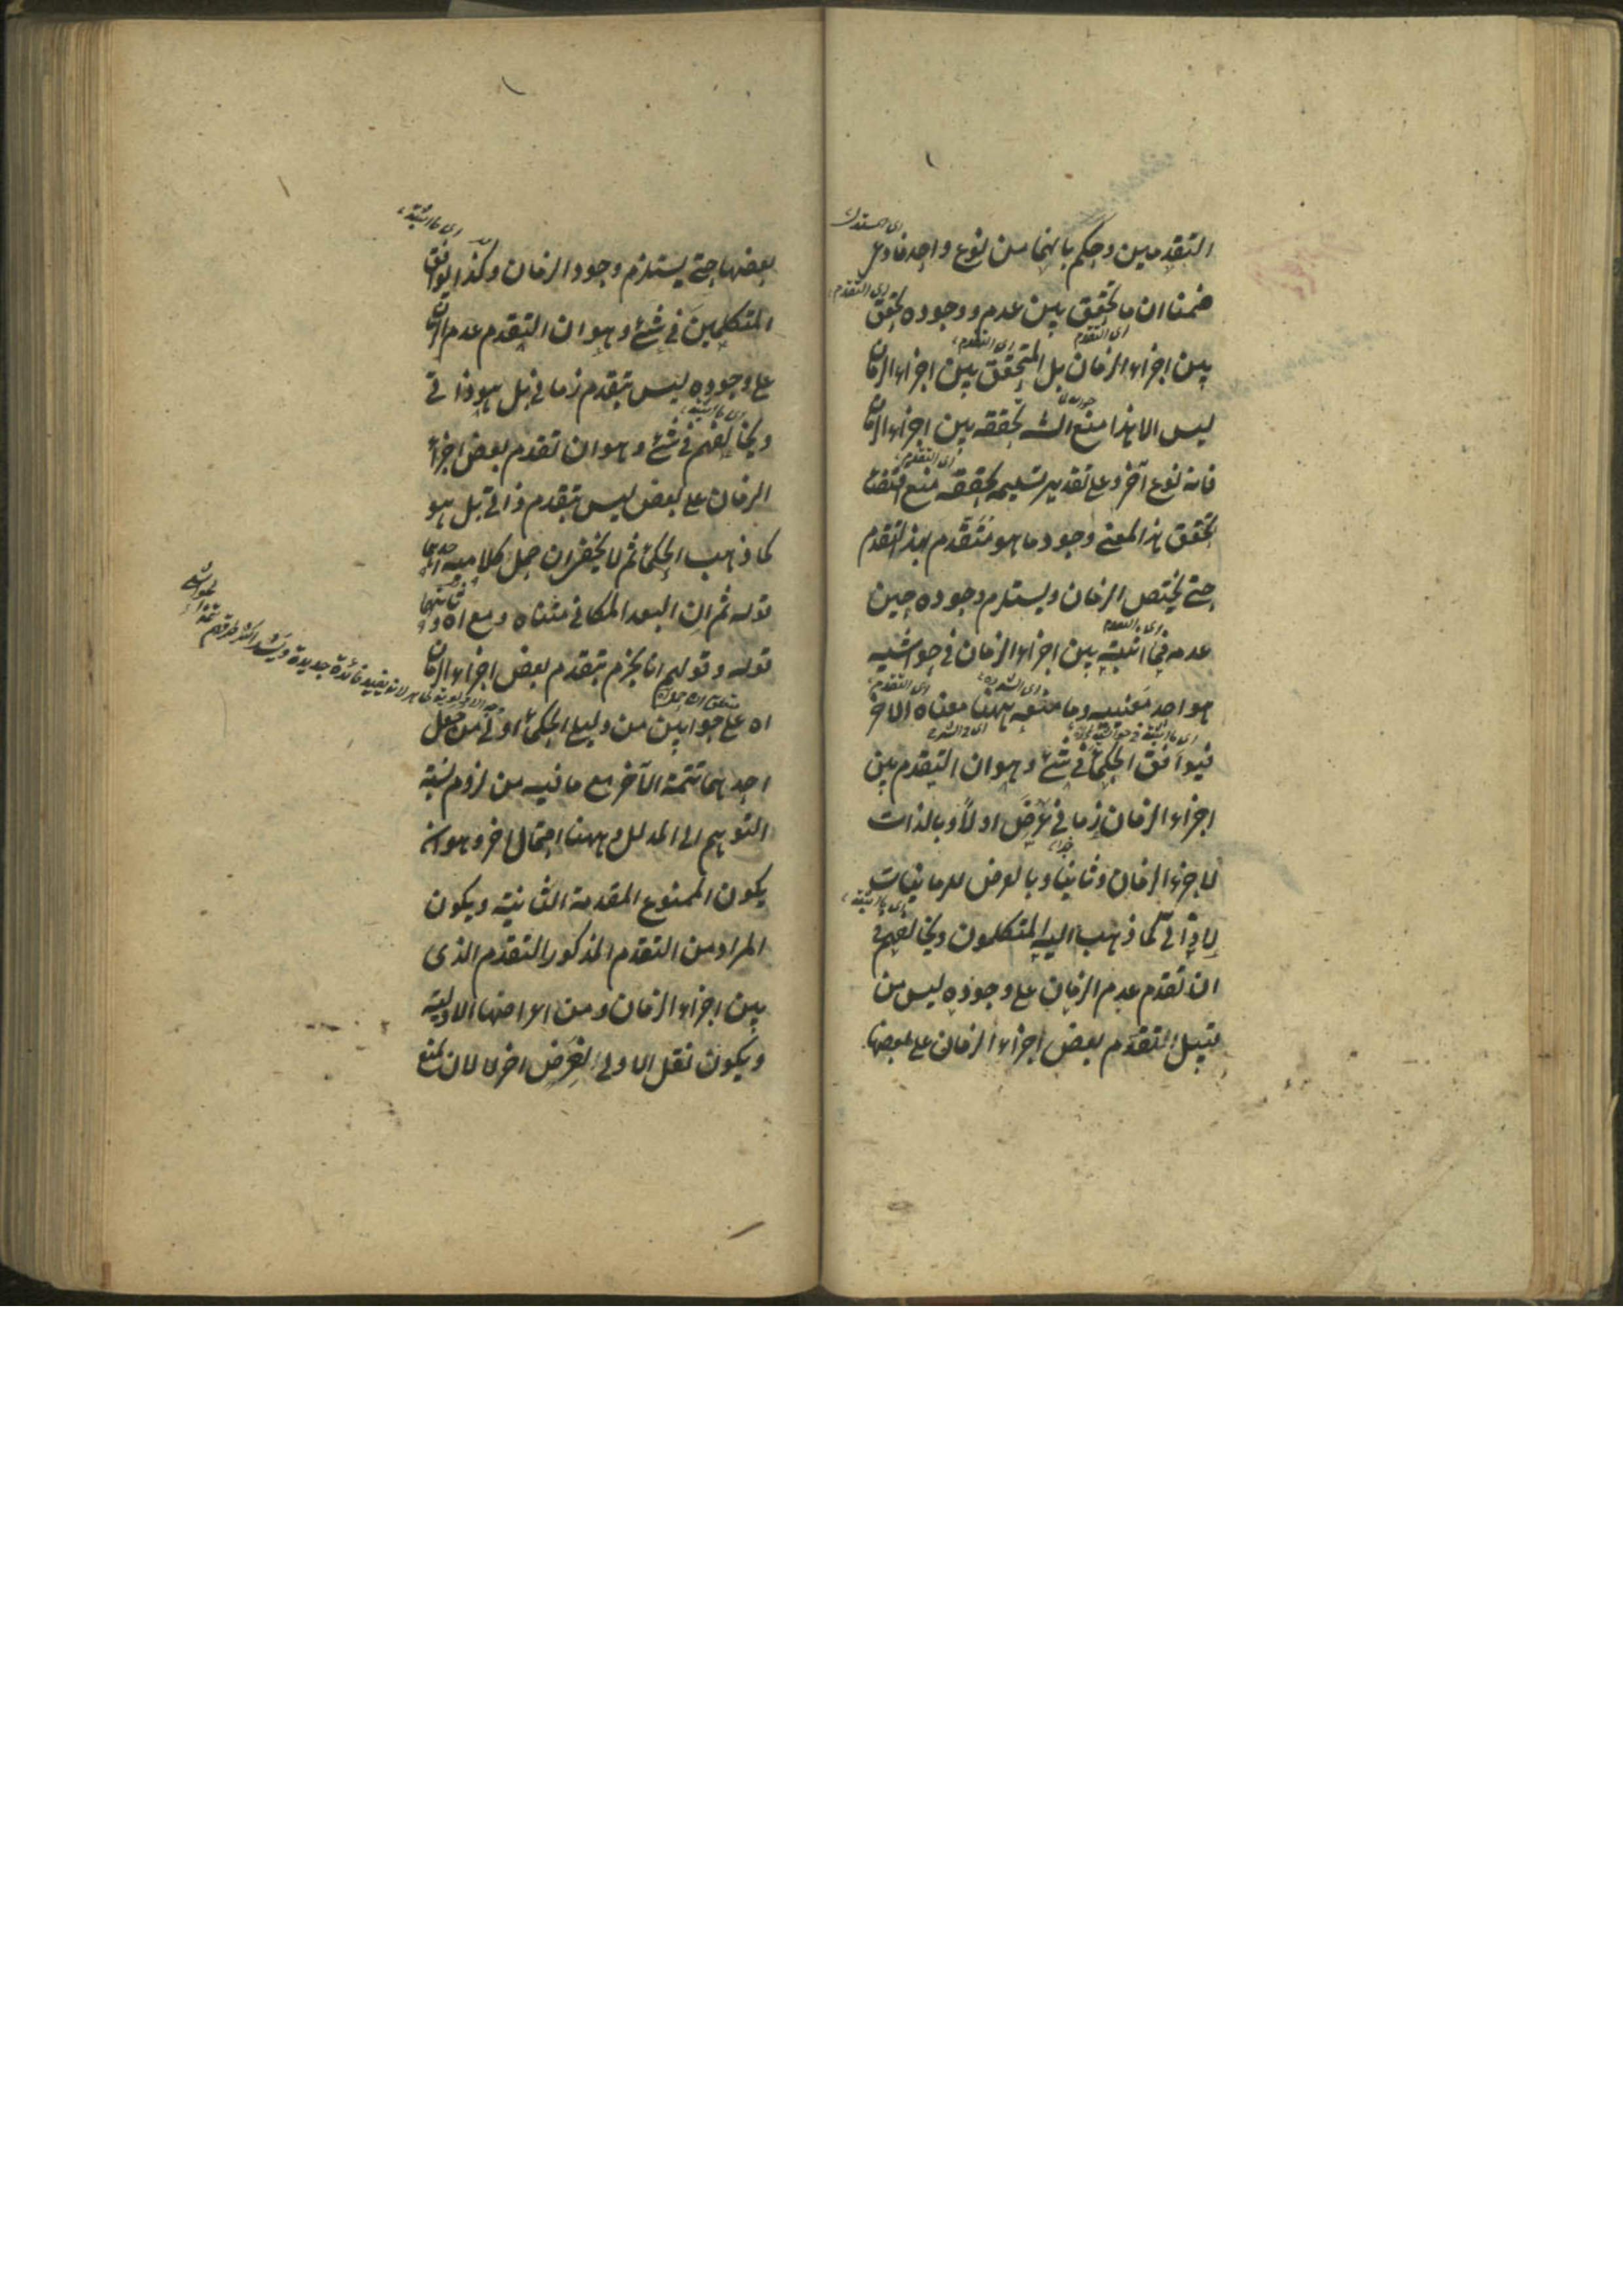 التقدمين وحكم بانهما من نوع واحد فادعى
ضمنا ان ما تحقق بين عدمه ووجوده تحقق
اى التقدم
بين اجزاء الزمان بل المتحقق بين اجزاء الزمان
ليس الا هذا منع الش تحققه بين اجزاء الزمان
اى التقدم
فانه نوع آخر وعلى تقدير تسليمه تحققه منع اقتضاء
تحقق هذا المعنى وجود ما هو متقدم بهذا التقدم
حتى يختص الزمان ويستلزم وجوده حين
اى التقدم
عدمه فما اثبته بين اجزاء الزمان فى حواشيه
هو احد معنييه وما منعه ههنا معناه الآخر
فيوافق الحكماء فى شئ وهو ان التقدم بين
اجزاء الزمان زمانى عرض اولا وبالذات
لاجزاء الزمان وثانيا وبالعرض للزمانيات
لا ذاتى كما ذهب اليه المتكلمون ويخالفهم فى
ان تقدم عدم الزمان على وجوده ليس من
قبيل التقدم بعض اجزاء الزمان على بعضها
بعضها حتى يستلزم وجود الزمان وكذا يوافق
المتكلمين فى شئ وهو ان التقدم عدم الزمان
على وجوده ليس بتقدم زمانى بل هو ذاتى
ويخالفهم فى شئ وهو ان تقدم بعض اجزاء
الزمان على بعض ليس بتقدم ذاتى بل هو
كما ذهب الحكماء ثم لا يخفى ان حمل كلاميه احدهما
قوله ثم ان البعد المكانى متناه ومع اه وثانيهما
قوله وقولهم انا نجزم بتقدم بعض اجزاء الزمان
اه على جوابين من دليل الحكماء اولى من جعل
احدهما تتمة الآخر مع ما فيه من لزوم نسبة
التوهم الى المدلل وههنا احتمال اخر وهو ان
يكون الممنوع المقدمة الثانية ويكون
المراد من التقدم المذكور التقدم الذى
بين اجزاء الزمان ومن اعراضها الاولية
ويكون نقل الاولى لغرض اخر لا لان يمنع